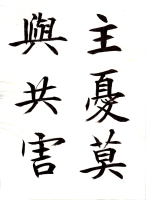 主憂莫
與共害